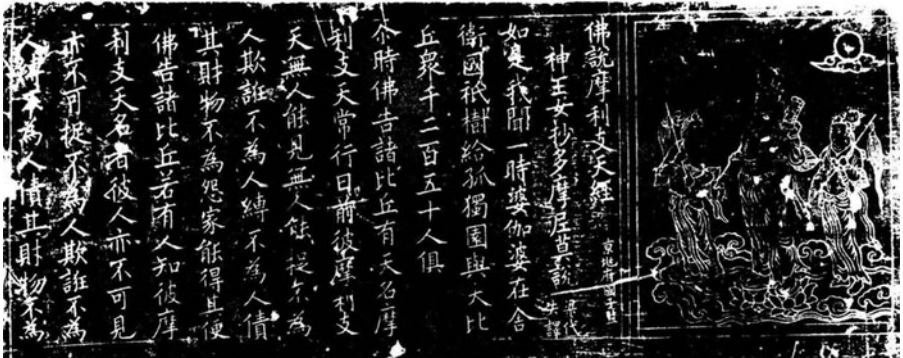 佛說摩利支天經
京兆府國子監
神王女抄多摩尼莫說 梁代失譯
如是我聞一時婆伽婆在舍
衛國祇樹給孤獨園與大比
丘衆千二百五十人俱
尒時佛告諸比丘有天名摩
利支天常行日前彼摩利支
天無人能見無人能捉不為
人欺誑不為人縛不為人債
其財物不為怨家能得其便
佛告諸比丘若有人知彼摩
利支天名者彼人亦不可見
亦不可捉不為人欺誑不為
人縛不為人債其財物不為